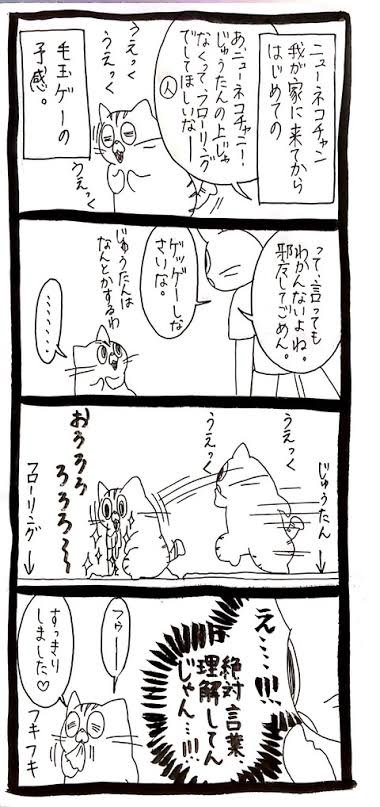 ニューネコチャン
我が家に来てから
はじめての
毛玉ゲーの
予感。
あ、ニューネコチャン！
じゅうたんの上じゃ
なくって、フローリング
でしてほしいなー
人
うえっく
うえっく
うえっく
って、言っても
わかんないよね。
邪魔してごめん。
ゲッゲーしな
さいな。
じゅうたんは
なんとかするわ
……
じゅうたん
うえっく
うえっく
おろろろ
ろろろ〜
フローリング
え…!!!
絶対言葉
理解してん
じゃん…!!!
フゥー
すっきり
しました♡
フキフキ